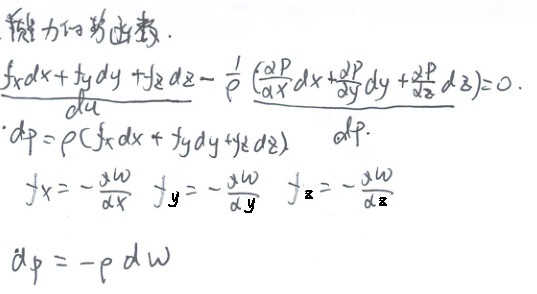 质量力的势函数.
fxdx+fydy+fzdz - 1/ρ (∂P/∂x dx+∂P/∂y dy+∂P/∂z dz)=0.
du
dp.
dp=ρ(fxdx+fydy+fzdz)
fx=-∂W/∂x fy=-∂W/∂y fz=-∂W/∂z
dp=-ρdW